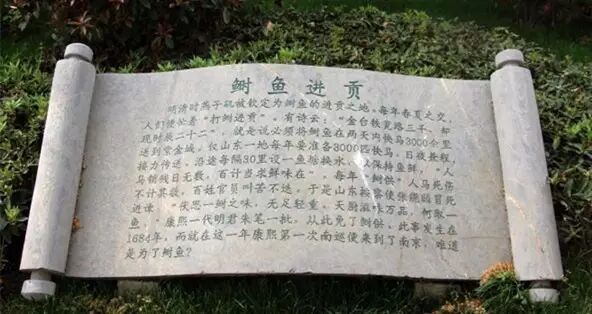 鲥鱼进贡
明清时燕子矶被钦定为鲥鱼的进贡之地。每年春夏之交，
人们便忙着“打鲥进贡”。有诗云：“金台铁瓮路三千，却
现时辰二十二”，就是说必须将鲥鱼在两天内快马3000余里
送到紫金城。仅山东一地每年要准备3000匹快马，日夜兼程，
接力传送，沿途每隔30里设一鱼塘换水，以保持鱼鲜，“人
马销残日无数，百计当求鲜味在”。每年“鲥供”人马死伤
不计其数，百姓官员叫苦不迭，于是山东按察使张能鳞冒死
进谏，“伏思一鲥之味，无足轻重，天厨滋味万品，何取一
鱼”康熙一代明君朱笔一批，从此免了鲥供，此事发生在
1684年，而就在这一年康熙第一次南巡便来到了南京，难道
是为了鲥鱼？